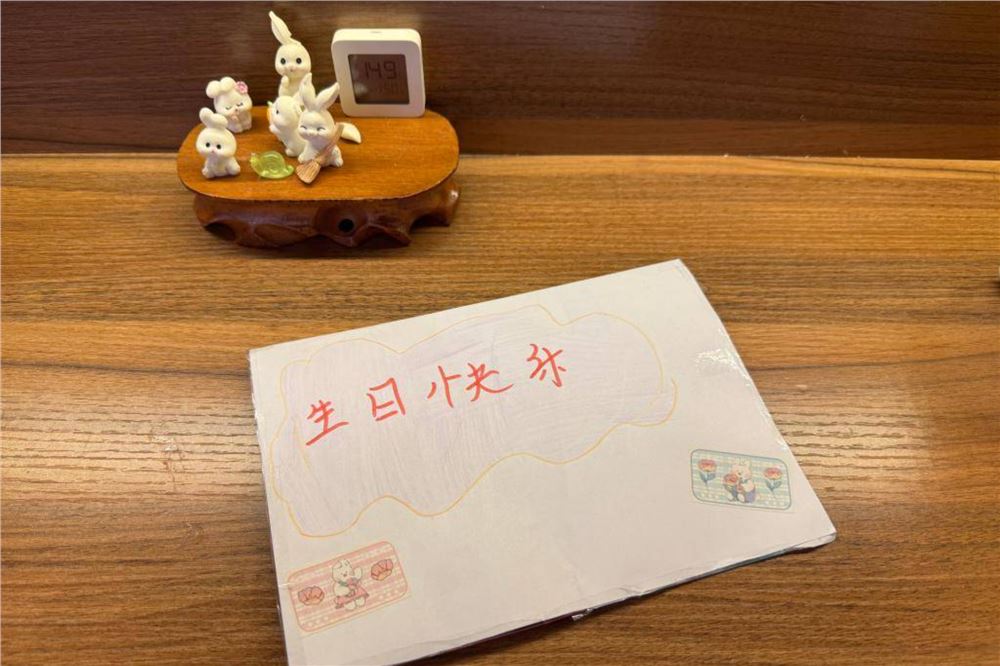 149
生日快乐